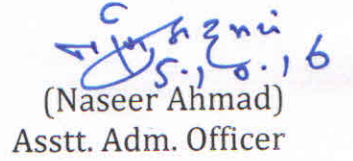 5.10.16
(Naseer Ahmad)
Asstt. Adm. Officer